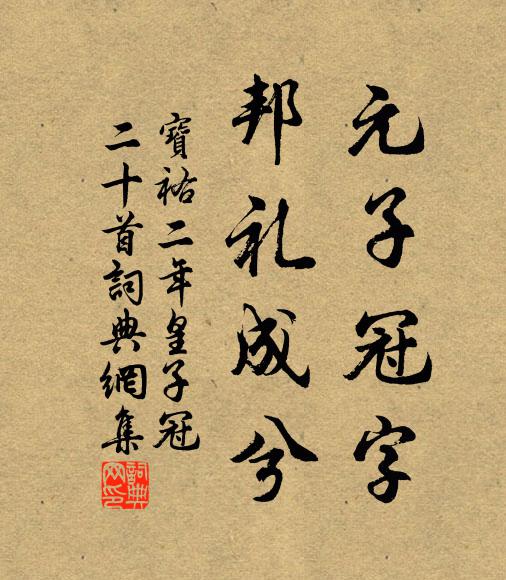 元子冠字
邦礼成兮
寶祐二年皇子冠
二十首詞典網集
詞典
网印